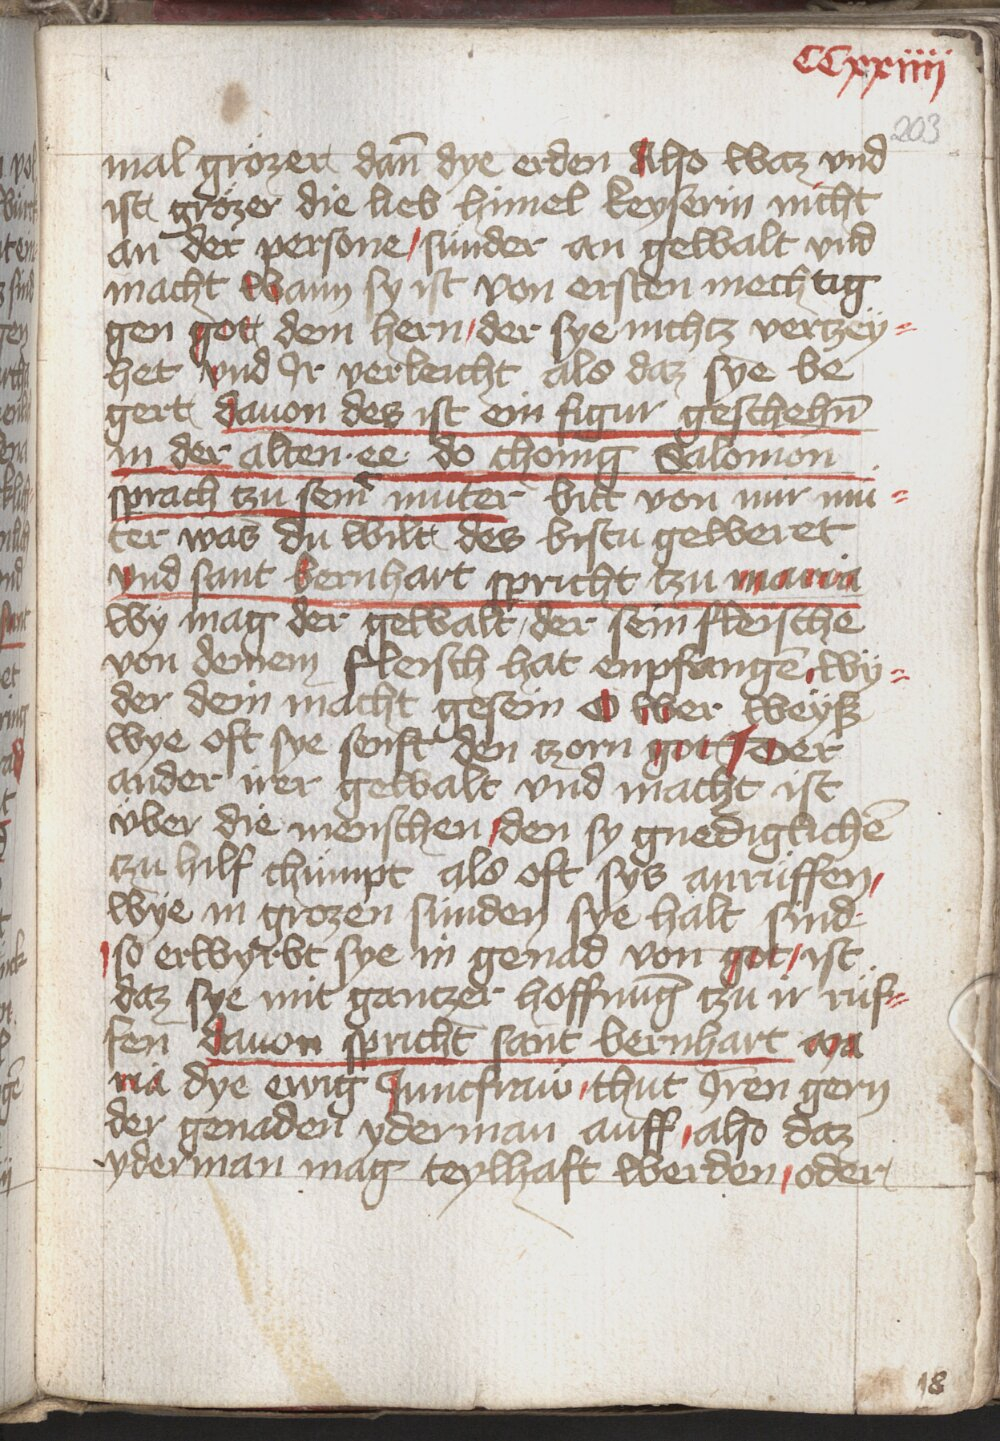 CCxxiiii
203
mal grözer dañ dye erden Also waz vnd
ist grözer die lieb himel keyserin nicht
an der persone / sünder an gewalt vnd
macht wann sy ist von ersten mechtig
gen got dem hern / der sye nichtz vertzey=
het vnd Ir verleicht als daz sye be
gert dauon des ist ein figur geschehn̄
in der alten ee do chönig Salomon
sprach tzu sein̄ muter bitt von mir mu=
ter was du wilt des bistu geweret
vnd sant bernhart spricht tzu maria
wy mag der gewalt / der sein fleische
von deinem fleisch hat enpfangē wy=
der dein macht gesein O wer weyß
wye oft sye senft den tzorn got Der
ander irer gewalt vnd macht ist
über die menschen / den sy gnediglichē
tzu hilf chümpt als oft sys anrüffen /
wye in grozen sünden sye halt sind
/ so erwyrbt sye in genad von got / ist
daz sye mit gantzer hoffnūg tzu ir rüf=
fen dauon spricht sant bernhart ma
ria dye ewig Junckfraw / thut Iren gern
der genaden yderman auff / also daz
yderman mag teylhaft werden / oder
18